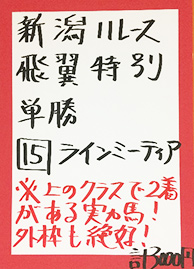 新潟11レース
飛翼特別
単勝
15 ラインミーティア
※上のクラスで2着
がある実力馬!
外枠も絶好!
計3000円